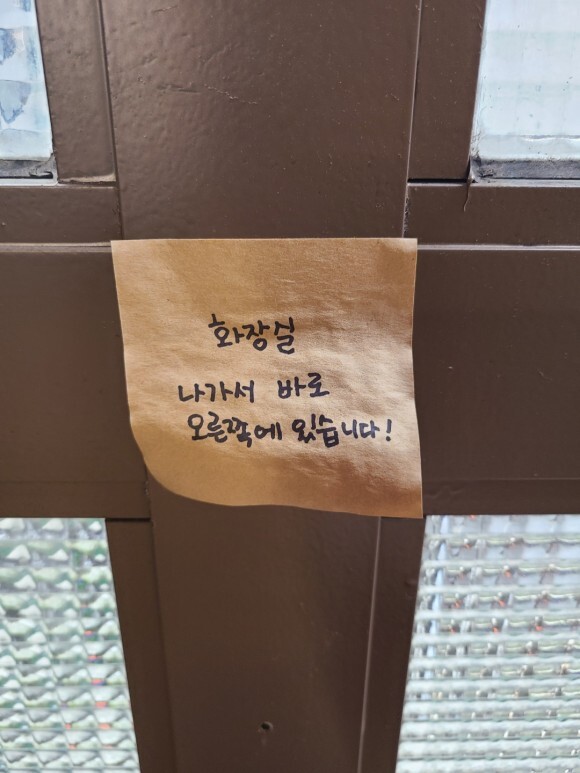 화장실
나가서 바로
오른쪽에 있습니다!